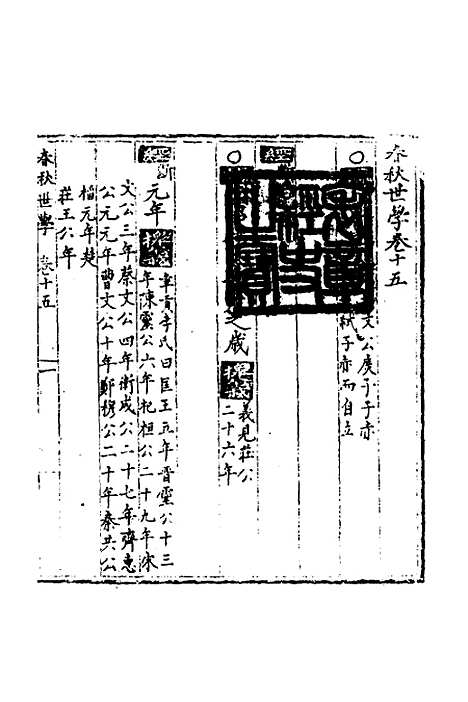 春秋世學卷十五
文公庶子子赤
弒子赤而自立
表章
經史
之寶
經
之歲
義見莊公
二十六年
經
元年
章貢李氏曰匡王五年晉靈公十三
年陳靈公六年杞桓公二十九年宋
文公三年蔡文公四年衛成公二十七年齊惠
公元元年曹文公十年鄭穆公二十年秦共公
稻元年楚
莊王六年
春秋世學 卷十五 一